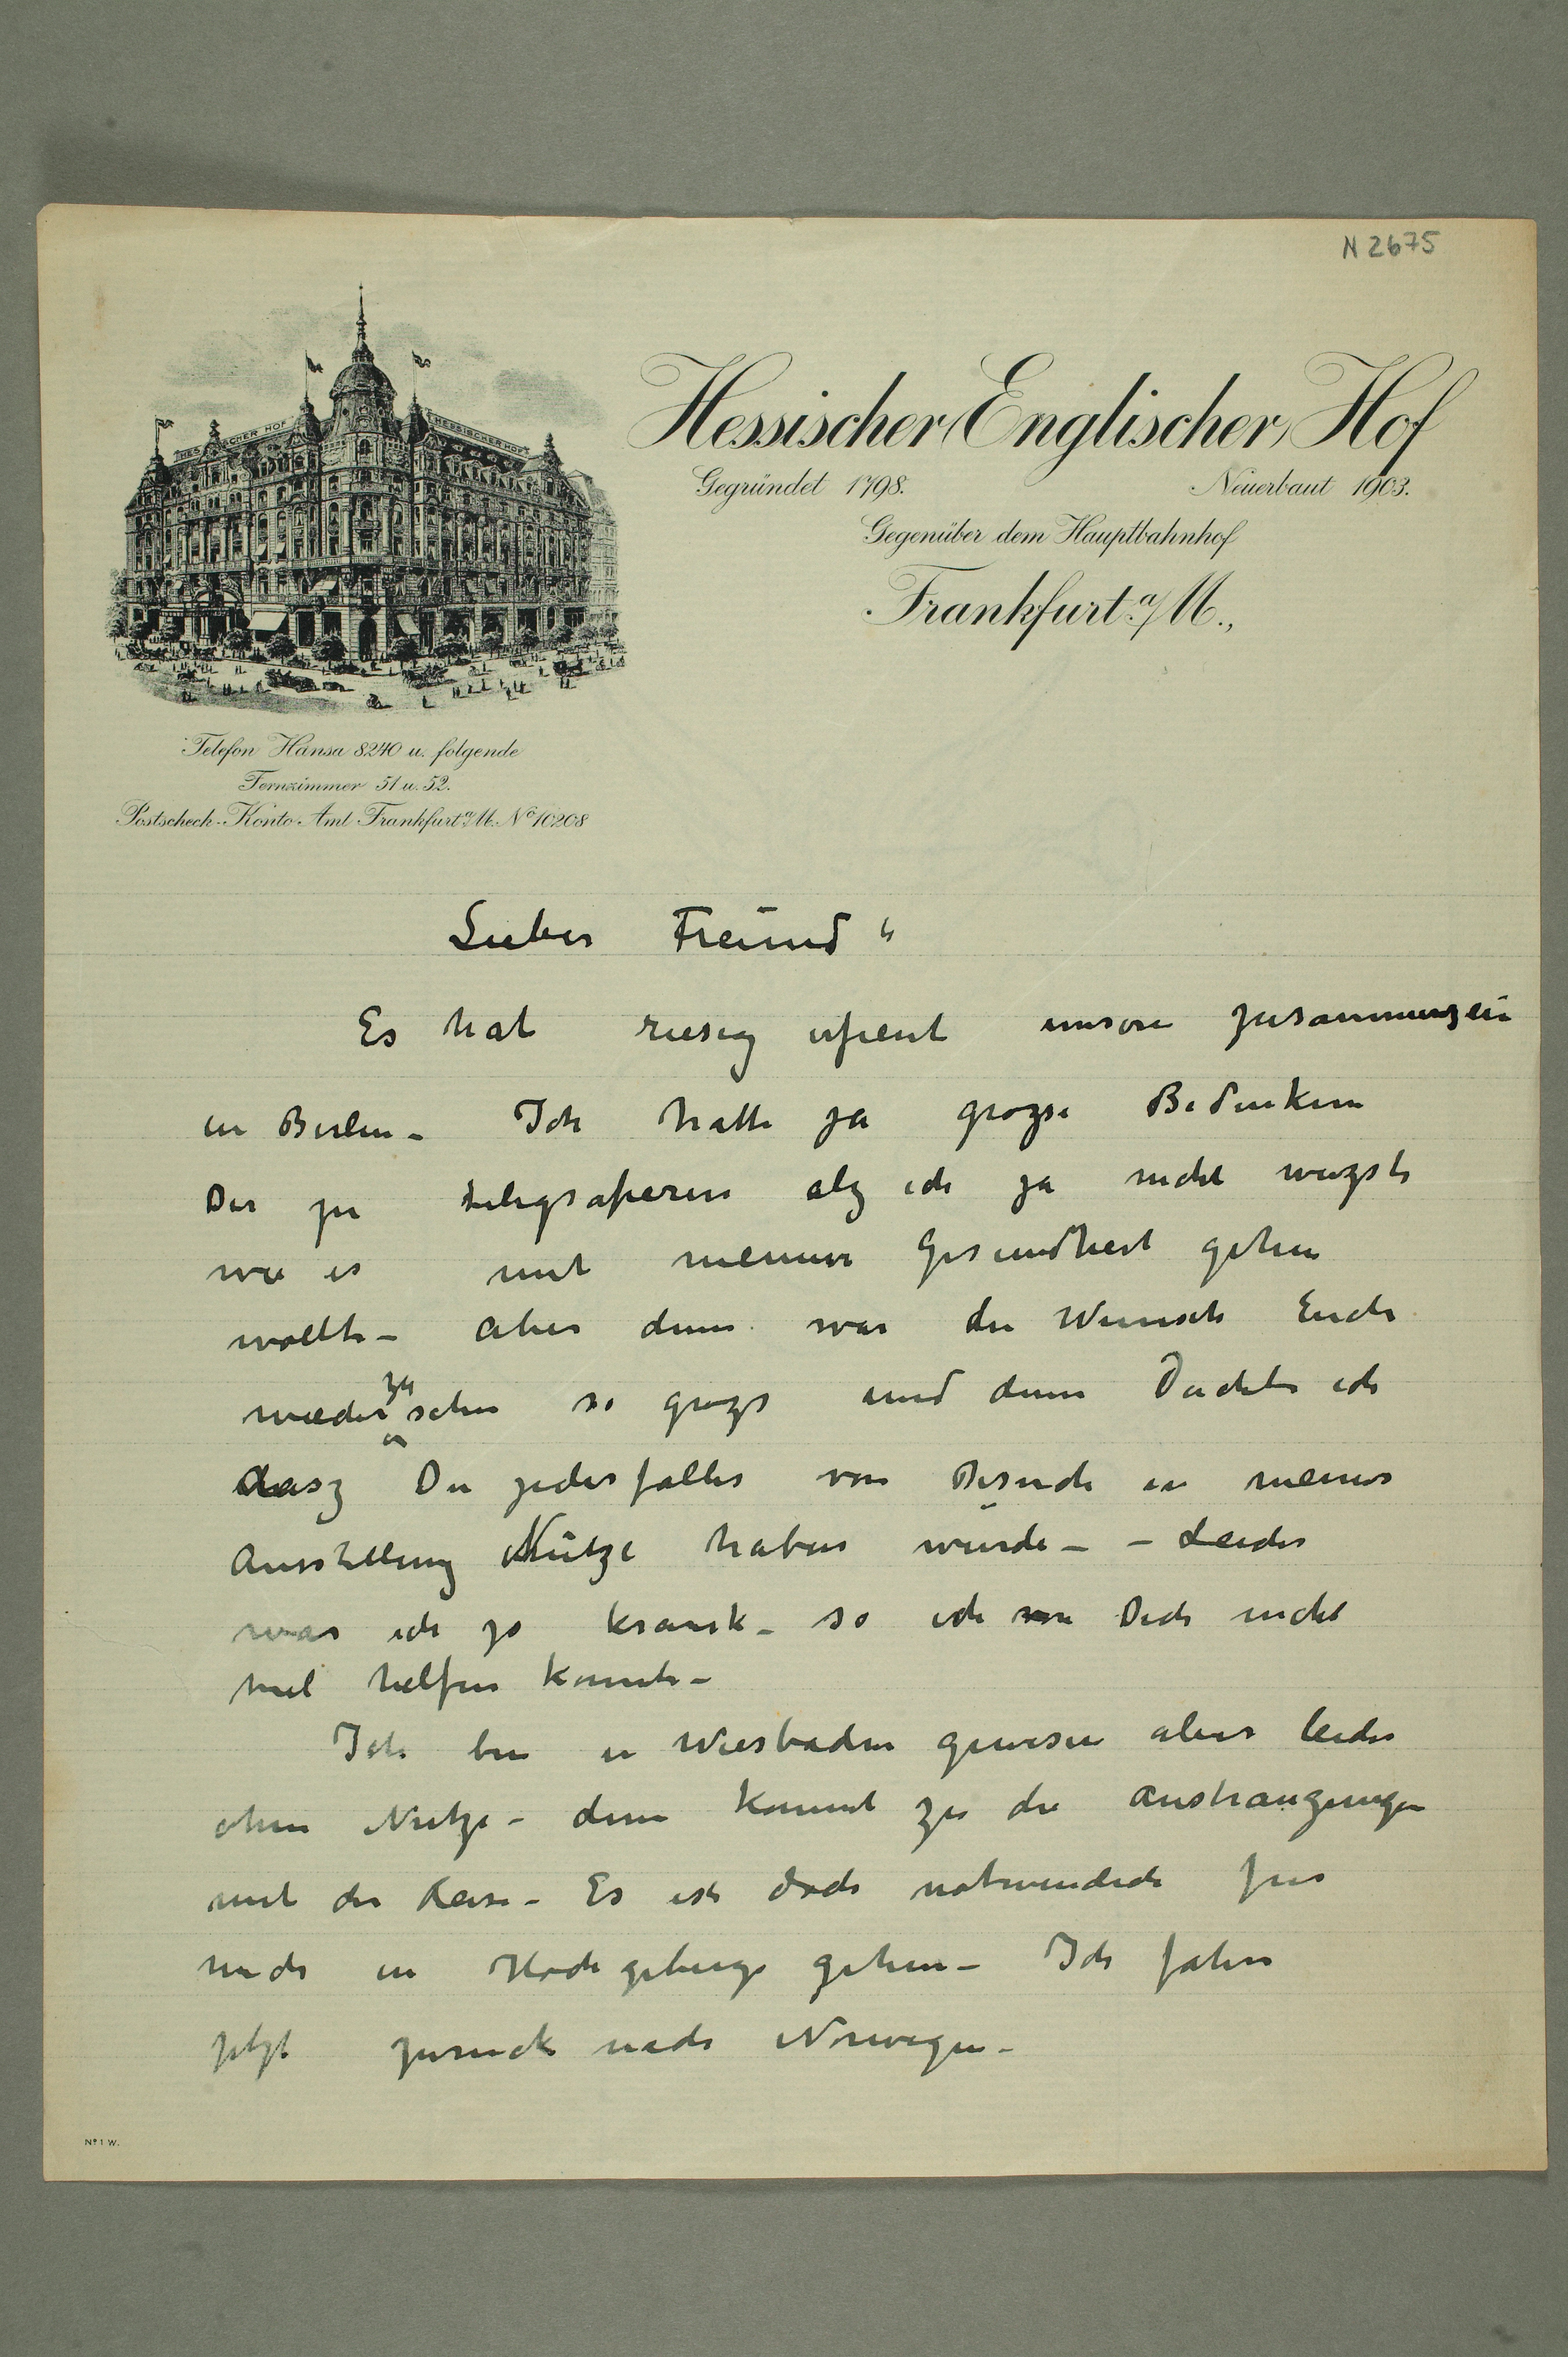 N 2675
HESSISCHER HOF
HESSISCHER HOF
Hessischer (Englischer) Hof
Gegründet 1798. Neuerbaut 1903.
Gegenüber dem Hauptbahnhof
Frankfurt a/M.,
Telefon Hansa 8240 u. folgende
Fernzimmer 51 u. 52.
Postscheck-Konto Amt Frankfurt a/M. No 10208
Lieber Freund
Es hat riesig erfreut unsere zusammenzein
in Berlin – Ich hatte ja grozse Bedenken
Dir zu telegrafieren alz ich ja nicht wuzste
wie es mit meiner Gesundheit gehen
wollte – aber denn war die Wunsch Euch
wieder zu sehen so grozs und denn Dachte ich
dasz Du jederfalles von Besuch in meiner
Ausstellung Nütze haben würde – – Leider
war ich jo krank – so ich Dich nicht
viel helfen konnte –
Ich bin in Wiesbaden gewesen aber leider
ohne Nutze – denn kommt zu die anstrangungen
mit der Reise – Es ist doch notwendich für
mich in Hochgebirge gehen – Ich fahre
jetzt zurück nach Norwegen –
No 1 W.